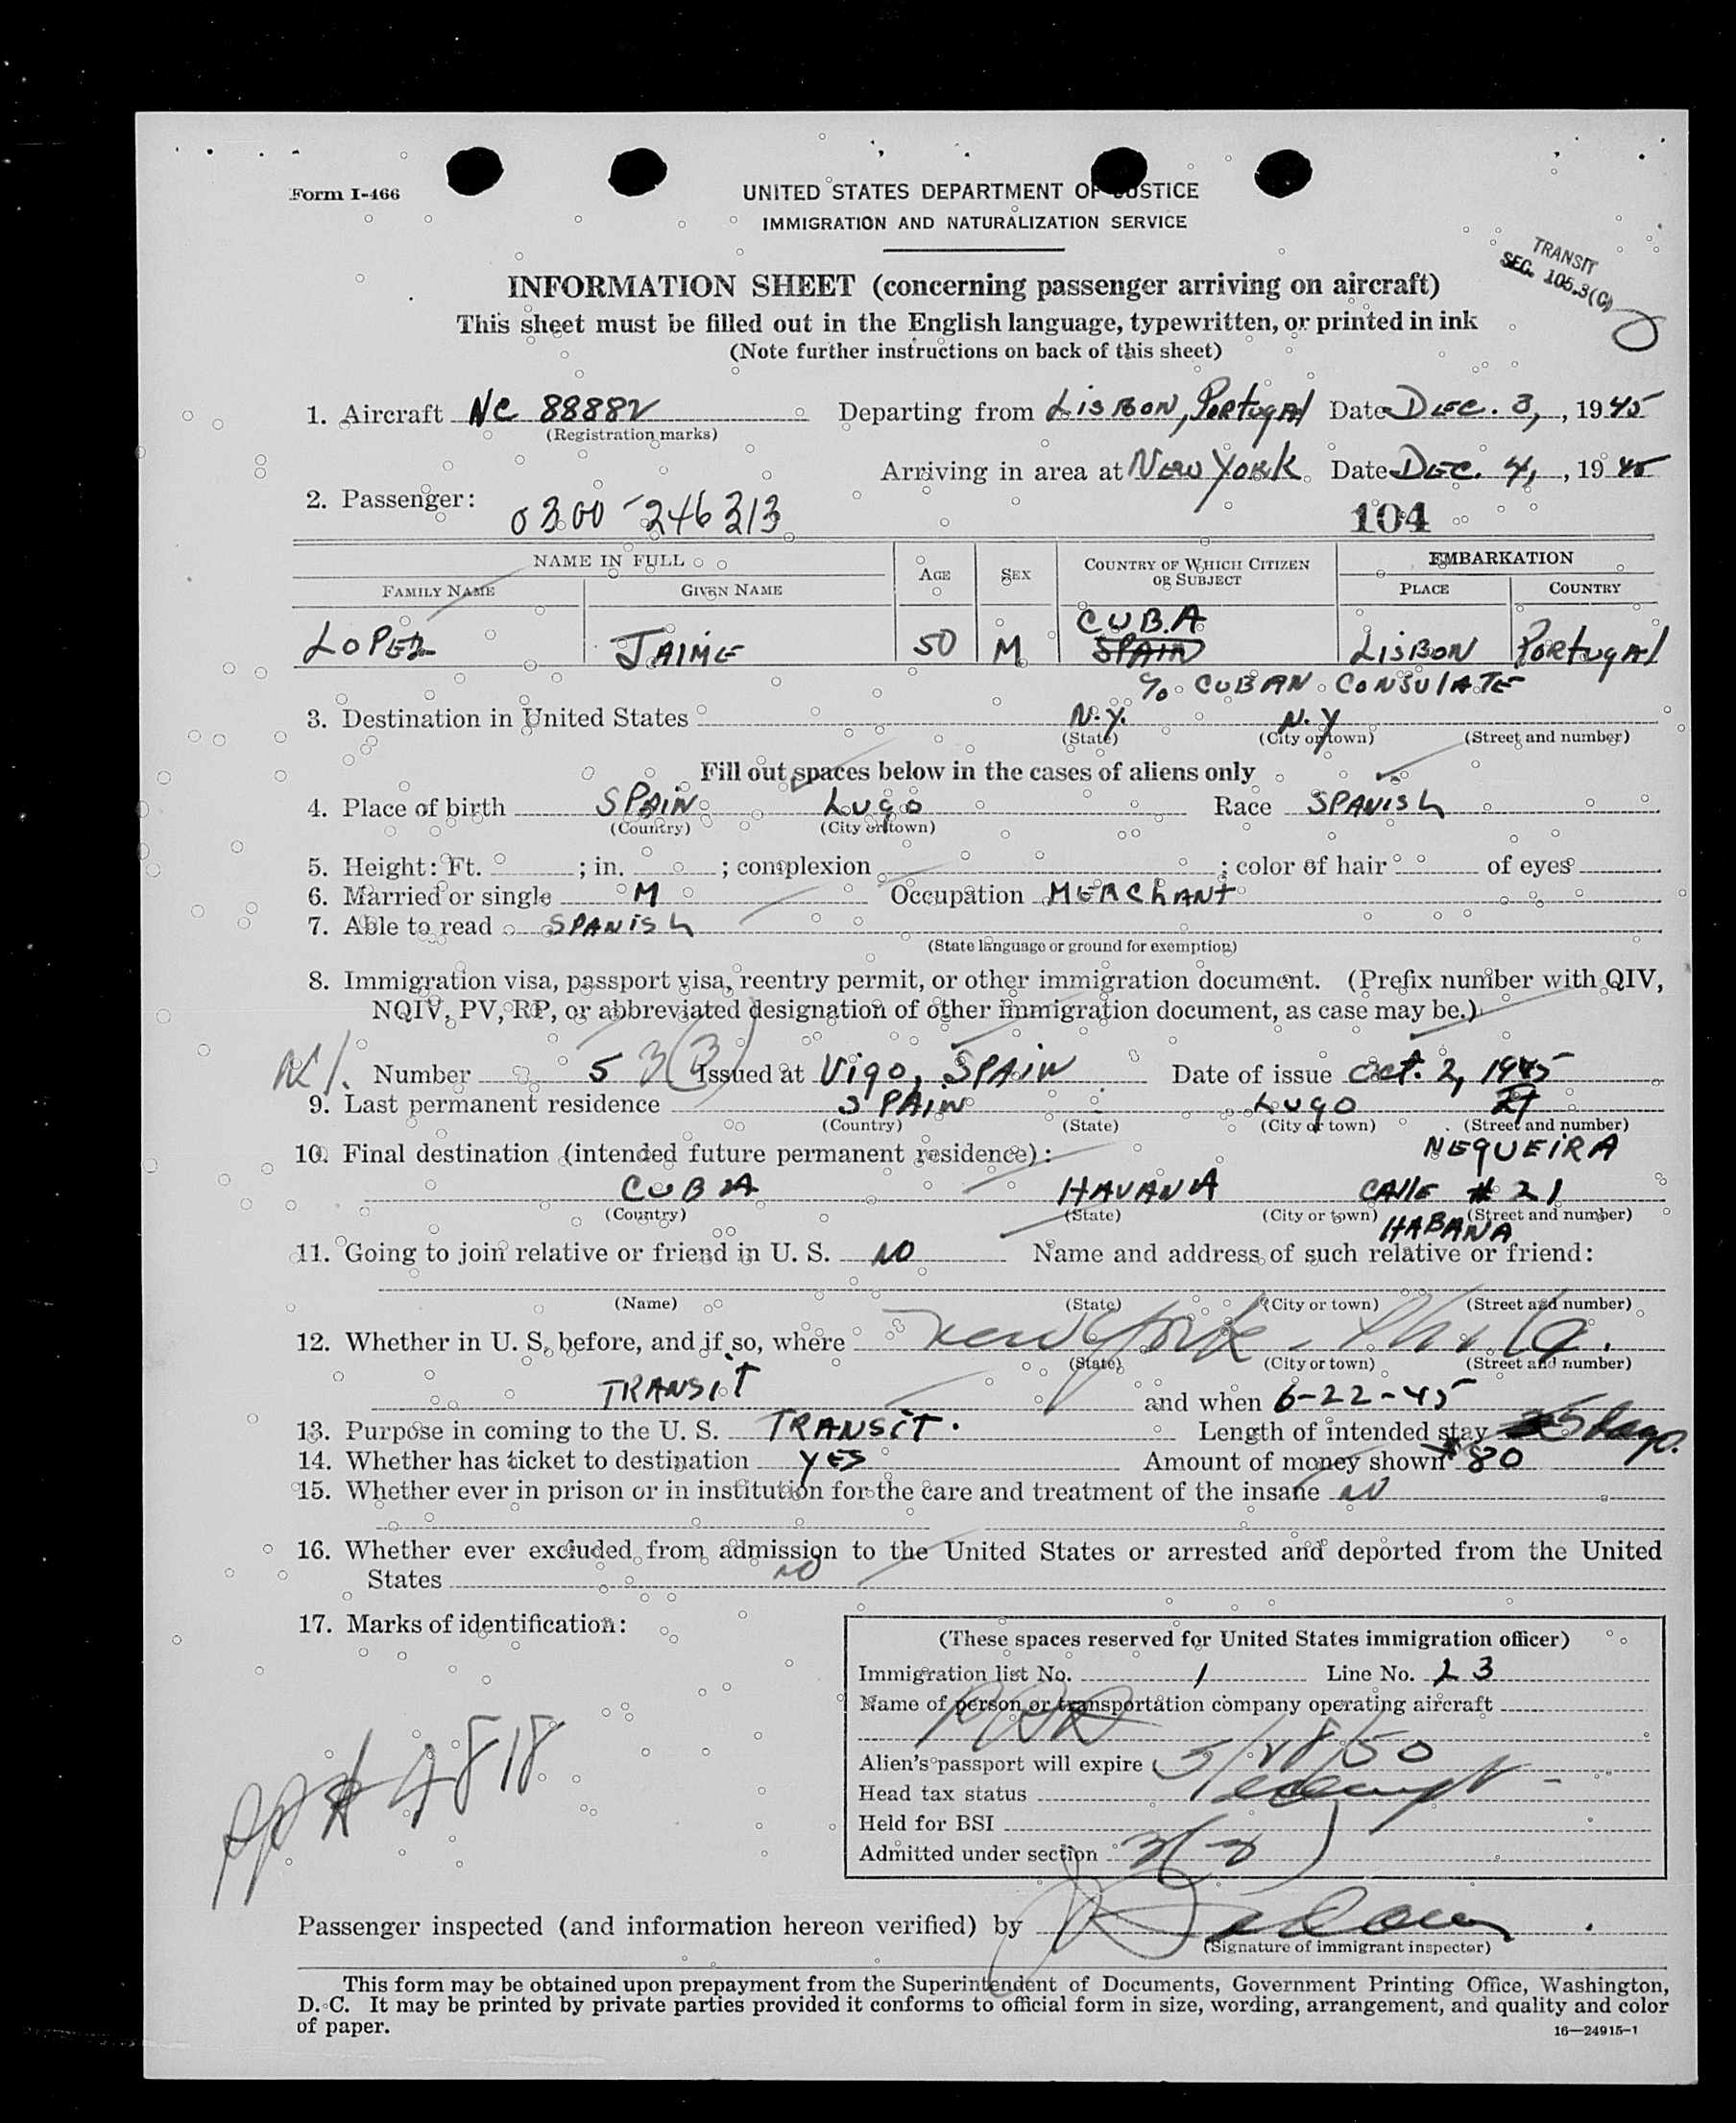 Form I-466
UNITED STATES DEPARTMENT OF JUSTICE
IMMIGRATION AND NATURALIZATION SERVICE
TRANSIT
SEC. 105.3(C)
INFORMATION SHEET (concerning passenger arriving on aircraft)
This sheet must be filled out in the English language, typewritten, or printed in ink
(Note further instructions on back of this sheet)
1. Aircraft NC 88882 Departing from LISBON, PORTUGAL Date DEC. 3, , 1945
(Registration marks)
Arriving in area at NEW YORK Date DEC. 4, , 1945
2. Passenger: 0300-246313 104
NAME IN FULL AGE SEX COUNTRY OF WHICH CITIZEN OR SUBJECT EMBARKATION
FAMILY NAME GIVEN NAME PLACE COUNTRY
CUBA
LOPEZ JAIME 50 M SPAIN LISBON PORTUGAL
% CUBAN CONSULATE
3. Destination in United States N.Y. N.Y
(State) (City or town) (Street and number)
Fill out spaces below in the cases of aliens only
4. Place of birth SPAIN LUGO Race SPANISH
(Country) (City or town)
5. Height: Ft. ; in. ; complexion ; color of hair of eyes
6. Married or single M Occupation MERCHANT
7. Able to read SPANISH
(State language or ground for exemption)
8. Immigration visa, passport visa, reentry permit, or other immigration document. (Prefix number with QIV,
NQIV, PV, RP, or abbreviated designation of other immigration document, as case may be.)
Number 5 3(3) Issued at VIGO, SPAIN Date of issue OCT. 2, 1945
9. Last permanent residence SPAIN LUGO
(Country) (State) (City or town) (Street and number)
NEQUEIRA
10. Final destination (intended future permanent residence):
CUBA HAVANA CALLE # 21
(Country) (State) (City or town) (Street and number)
HABANA
11. Going to join relative or friend in U. S. NO Name and address of such relative or friend:
(Name) (State) (City or town) (Street and number)
12. Whether in U. S. before, and if so, where New York - Phila.
(State) (City or town) (Street and number)
TRANSIT and when 6-22-45
13. Purpose in coming to the U. S. TRANSIT. Length of intended stay 5 days.
14. Whether has ticket to destination YES Amount of money shown $80
15. Whether ever in prison or in institution for the care and treatment of the insane NO
16. Whether ever excluded from admission to the United States or arrested and deported from the United
States NO
17. Marks of identification:
(These spaces reserved for United States immigration officer)
Immigration list No. 1 Line No. 23
Name of person or transportation company operating aircraft
PAA
Alien's passport will expire 5/28/50
Head tax status exempt -
Held for BSI
Admitted under section 3(3)
pp# 4818
Passenger inspected (and information hereon verified) by
(Signature of immigrant inspector)
This form may be obtained upon prepayment from the Superintendent of Documents, Government Printing Office, Washington,
D. C. It may be printed by private parties provided it conforms to official form in size, wording, arrangement, and quality and color
of paper.
16—24915-1